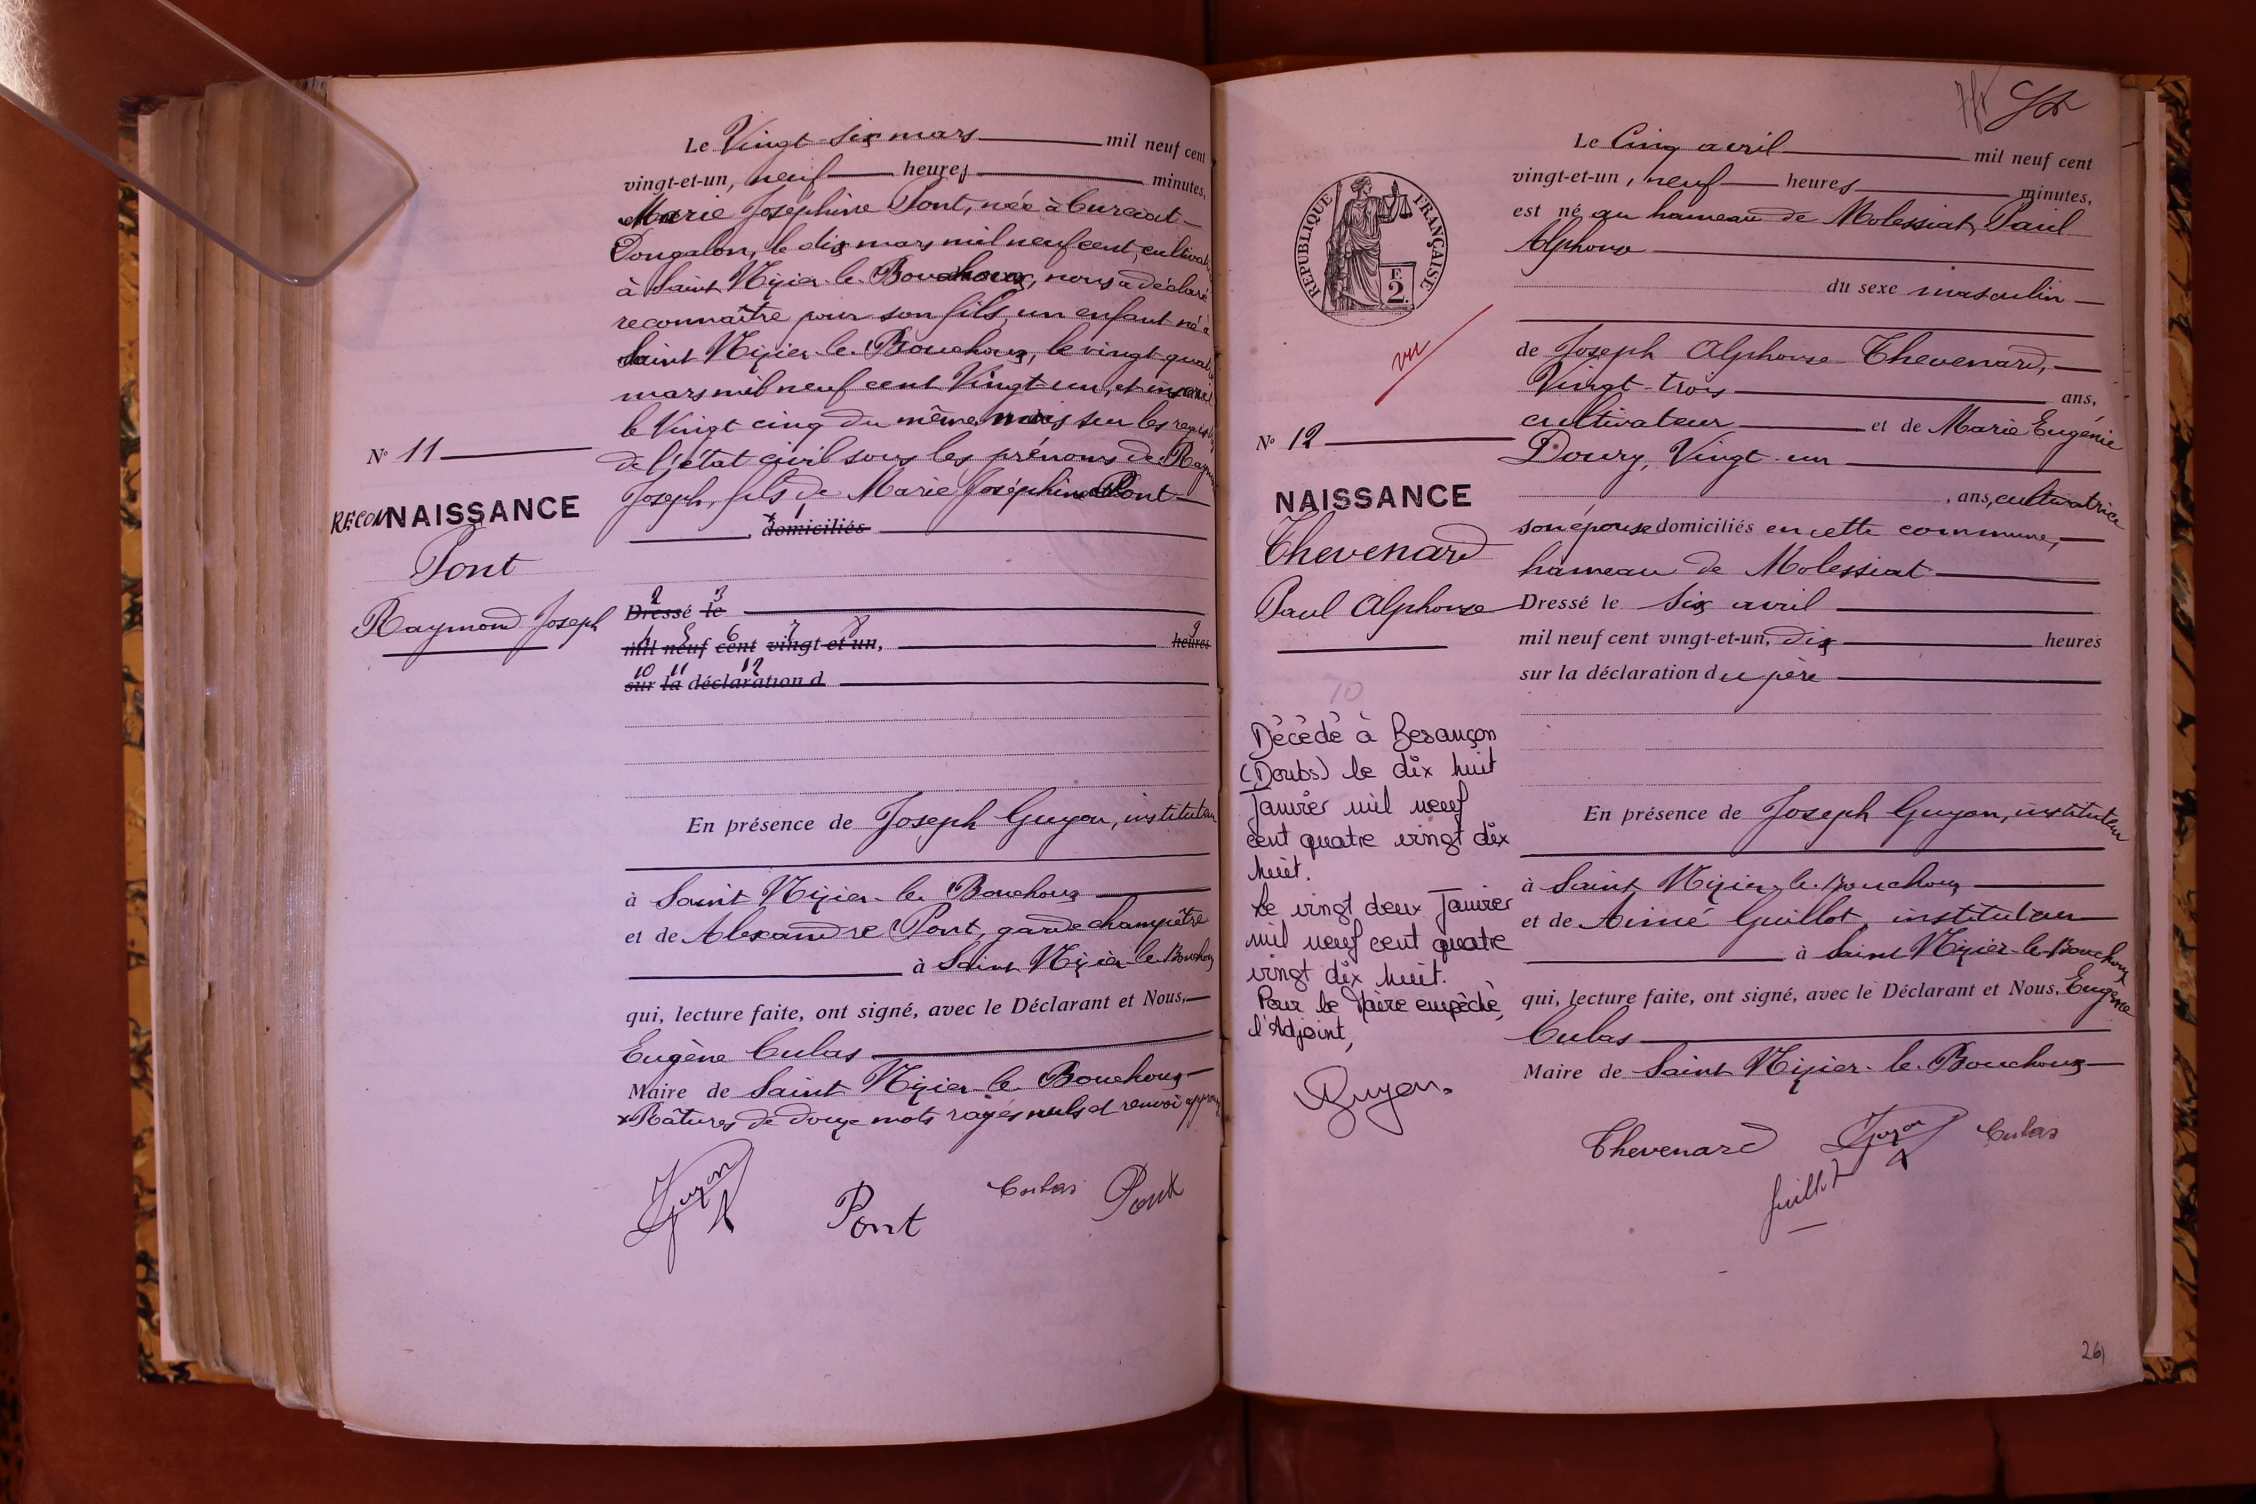 Le Vingt six mars mil neuf cent
vingt-et-un, neuf heures minutes,
Marie Joséphine Pont, née à Curciat-
Dongalon, le dix mars mil neuf cent, cultivat
à Saint Nizier-le-Bouchoux, nous a déclaré
reconnaître pour son fils, un enfant né à
Saint Nizier-le-Bouchoux, le vingt quat
mars mil neuf cent Vingt un, et inscrit
le Vingt cinq du même mois sur les regist
de l'état civil sous les prénoms de Raym
Joseph, fils de Marie Joséphine Pont
x 1
domiciliés
N° 11
RECONNAISSANCE
Pont
Raymond Joseph
2 3
Dressé le
4 5 6 7 8 9
mil neuf cent vingt-et-un, heures
10 11 12
sur la déclaration d
En présence de Joseph Guyon, instituteu
à Saint Nizier-le-Bouchoux
et de Alexandre Pont, garde champêtre
à Saint Nizier-le-Bouchoux
qui, lecture faite, ont signé, avec le Déclarant et Nous,
Eugène Culas
Maire de Saint Nizier-le-Bouchoux
x Ratures de douze mots rayés nuls et renvoi approuv
Guyon
Pont
Culas
Pont
Le Cinq avril mil neuf cent
vingt-et-un, neuf heures minutes,
est né au hameau de Molessiat, Paul
Alphonse
du sexe masculin
de Joseph Alphonse Thevenard,
Vingt-trois ans,
cultivateur et de Marie Eugénie
Doury, Vingt-un
, ans, cultivatrice
son épouse domiciliés en cette commune,
hameau de Molessiat
Dressé le Six avril
mil neuf cent vingt-et-un, dix heures
sur la déclaration du père
RÉPUBLIQUE FRANÇAISE
F.
2.
vu
N° 12
NAISSANCE
Thevenard
Paul Alphonse
10
Décédé à Besançon
(Doubs) le dix huit
Janvier mil neuf
cent quatre vingt dix
huit.
Le vingt deux Janvier
mil neuf cent quatre
vingt dix huit.
Pour le Maire empêché,
l'Adjoint,
Guyon.
En présence de Joseph Guyon, instituteur
à Saint Nizier-le-Bouchoux
et de Aimé Guillot, instituteur
à Saint Nizier-le-Bouchoux
qui, lecture faite, ont signé, avec le Déclarant et Nous, Eugène
Culas
Maire de Saint Nizier-le-Bouchoux
Thevenard
Guyon
Culas
Guillot
26